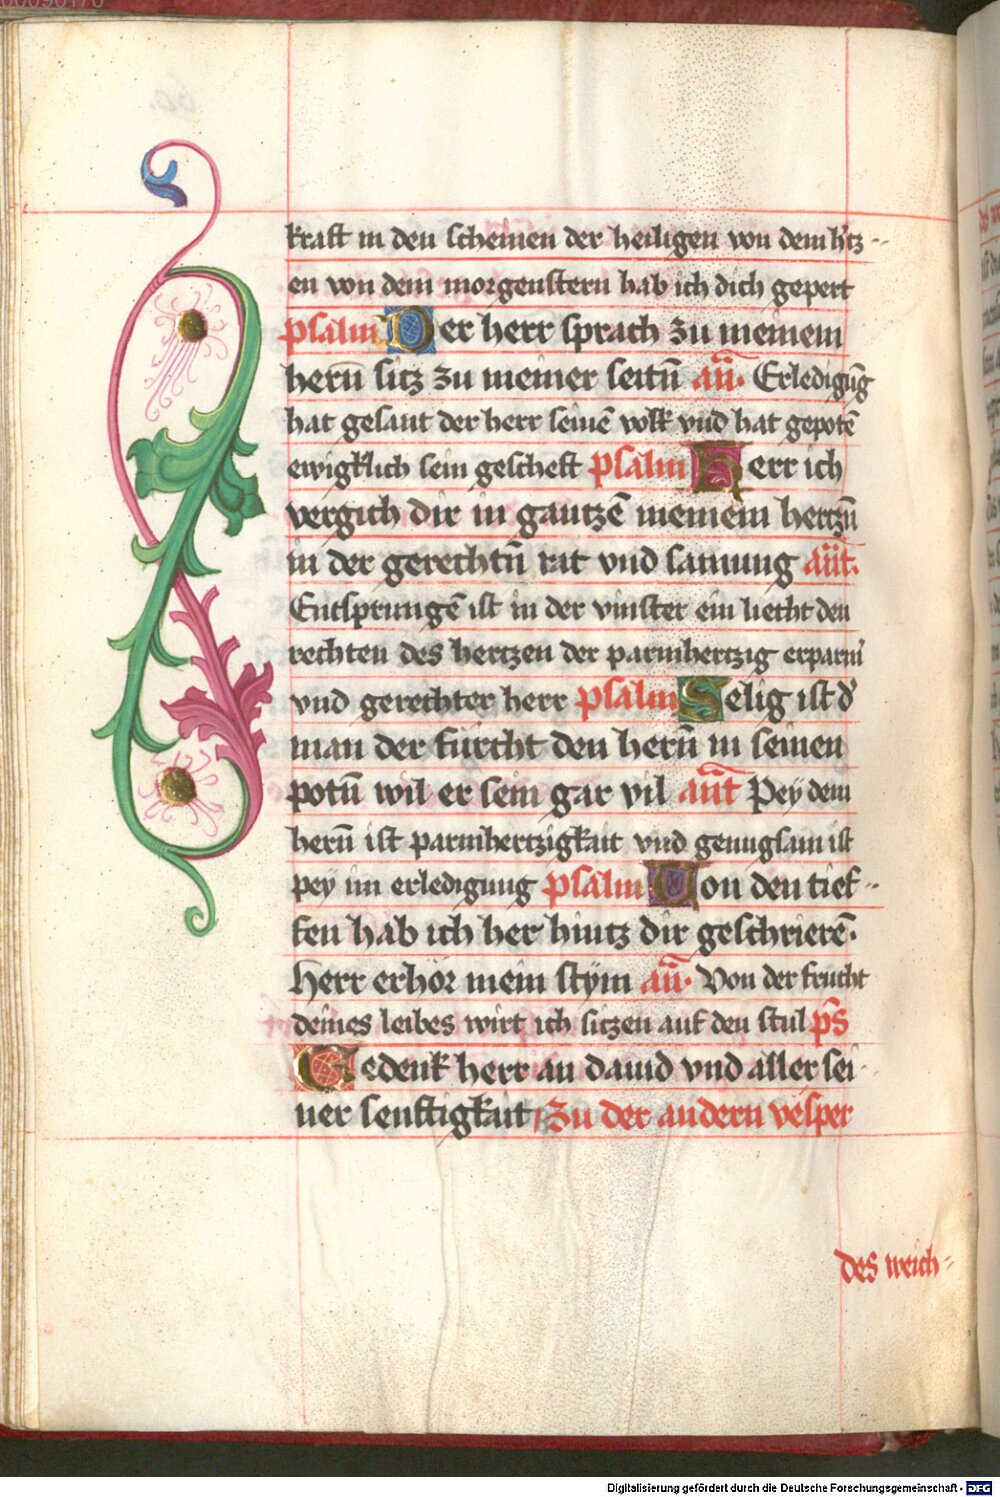 kraft in den scheinen der heiligen von dem h'tz--
en von dem morgenstern hab ich dich gepert
psalm Der herr sprach zu meinem
herñ sitz zu meiner seitñ añ. Erledigũg
hat gesant der herr seinē volk vnd hat gepotē
ewigklich sein gescheft psalm Herr ich
vergich dir in gantzē meinem hertzñ
in der gerechtñ rat vnd samung añt.
Entsprungē ist in der vinster ein liecht den
rechten des hertzen der parmhertzig erparm̄
vnd gerechter herr psalm Selig ist d'
man der fürcht den herñ in seinen
potñ wil er sein gar vil añt Pey dem
herñ ist parmhertzigkait vnd genugsam ist
pey im erledigung psalm Von den tief--
fen hab ich her hintz dir geschrierē.
Herr erhör mein stÿm añ. Von der frucht
deines leibes wirt ich sitzen auf den stul ps̄
Gedenk herr an dauid vnd aller sei-
ner senftigkait Zu der andern vesper
des weich-
Digitalisierung gefördert durch die Deutsche Forschungsgemeinschaft - DFG